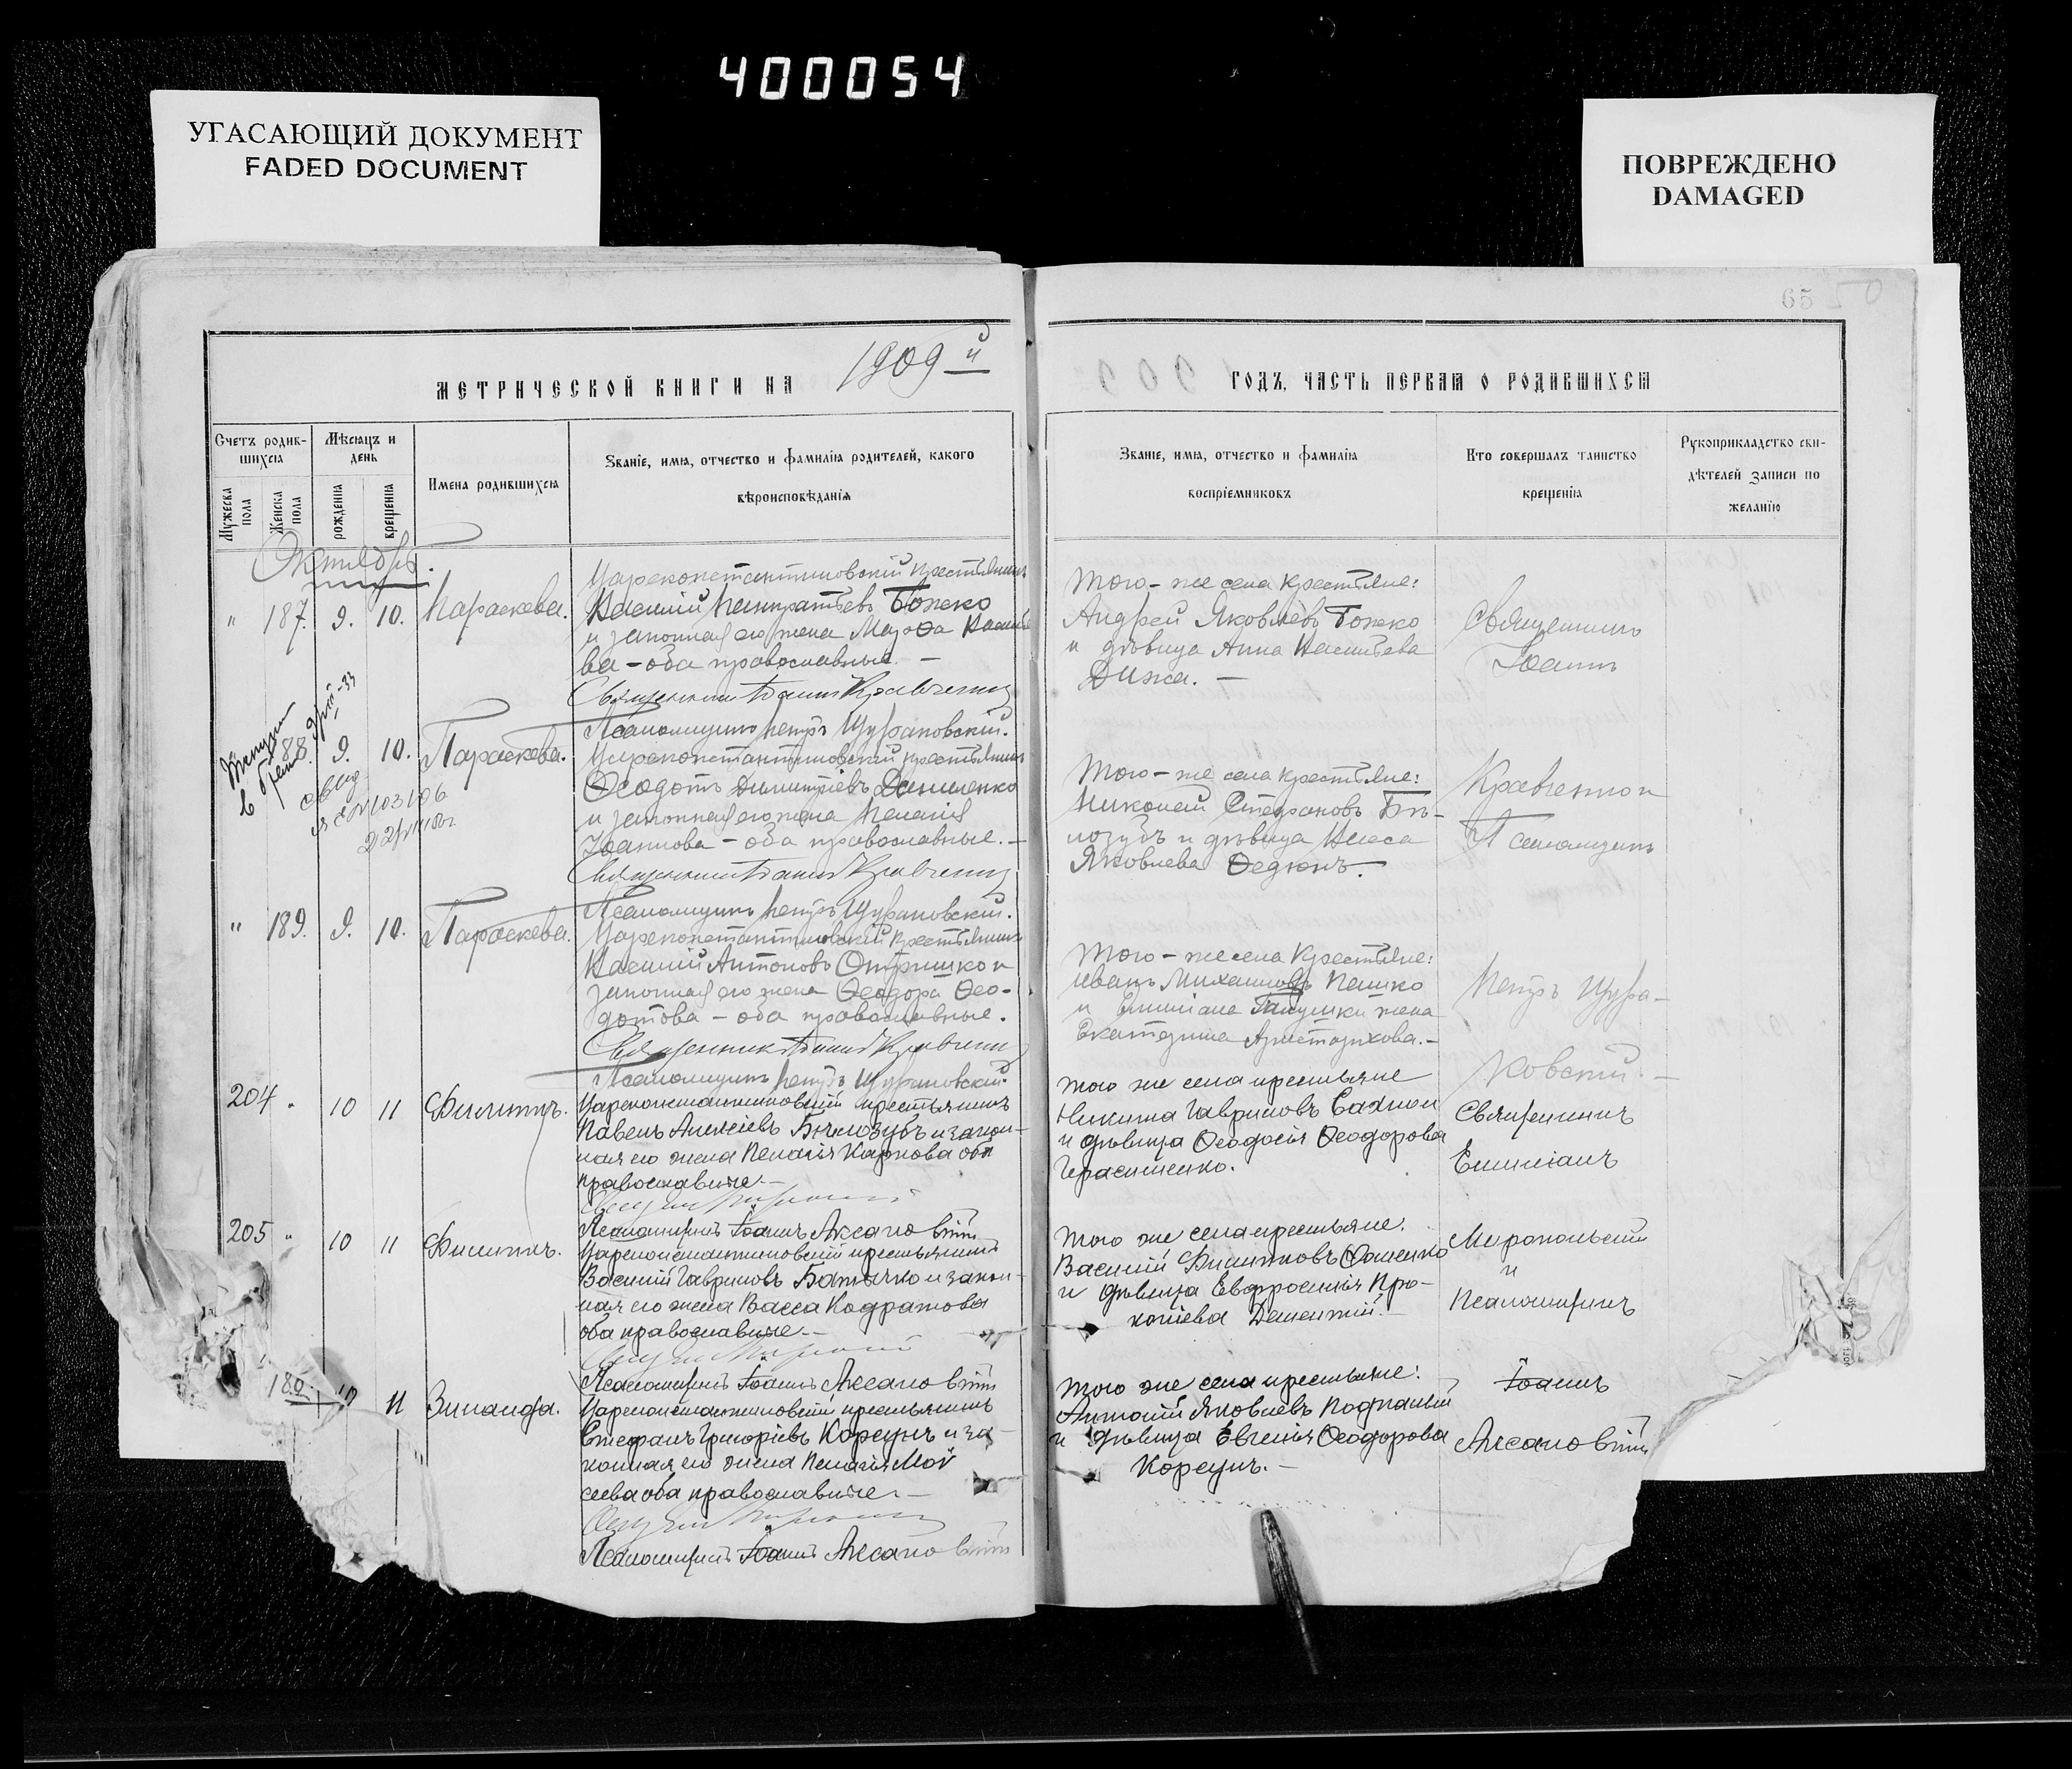 400054
УГАСАЮЩИЙ ДОКУМЕНТ
FADED DOCUMENT
ПОВРЕЖДЕНО
DAMAGED
65
МЕТРИЧЕСКОЙ КНИГИ НА 1909й
ГОДЪ, ЧАСТЬ ПЕРВАЯ О РОДИВШИХСЯ
Счетъ родив-
шихся
Мѣсяцъ и
день
Мужеска
пола
Женска
пола
рожденія
крещенія
Имена родившихся
Званіе, имя, отчество и фамилія родителей, какого
вѣроисповѣданія
Званіе, имя, отчество и фамилія
воспріемниковъ
Кто совершалъ таинство
крещенія
Рукоприкладство сви-
дѣтелей записи по
желанію
Октябрь.
" 187. 9. 10. Параскева.
Цареконстантиновскій крестьянинъ
Василій Панкратьевъ Божко
и законная его жена Марѳа
ва - оба православные. -
Священникъ Іоаннъ Кравченко
Псаломщикъ Петръ Щурановскій.
Того-же села крестьяне:
Андрей Яковлевъ Божко
и дѣвица Анна Васильева
Дижа. -
Священникъ
Іоаннъ
188. 9. 10. Параскева.
Цареконстантиновскій крестьянинъ
Ѳеодотъ Димитріевъ Даниленко
и законная его жена Пелагія
Іоаннова - оба православные. -
Священникъ Іоаннъ Кравченко
Псаломщикъ Петръ Щурановскій.
Того-же села крестьяне:
Николай Стефановъ Бѣ-
лозубъ и дѣвица
Яковлева Ѳедюнъ. -
Кравченко и
Псаломщикъ
" 189. 9. 10. Параскева.
Цареконстантиновскій крестьянинъ
Василій Антоновъ Отришко и
законная его жена Ѳеодора Ѳео-
дотова - оба православные.
Священникъ Іоаннъ Кравченко
Псаломщикъ Петръ Щурановскій.
Того-же села крестьяне:
Иванъ Михаиловъ Пешко
и Емиліана Галушки жена
Екатерина Аристархова. -
Петръ Щура-
новскій. -
204 " 10 11 Филиппъ.
Цареконстантиновскій крестьянинъ
Павелъ Алексіевъ Бѣлозубъ и закон-
ная его жена Пелагія Карпова оба
православные. -
Псаломщикъ Іоаннъ
Того же села крестьяне
Никита Гавриловъ Бахмой
и дѣвица Ѳеодосія Ѳеодорова
Герасименко.
Священникъ
Емиліанъ
205 " 10 11 Филиппъ.
Цареконстантиновскій крестьянинъ
Василій Гавриловъ Батечко и закон-
ная его жена Васса Кодратова
оба православные. -
Псаломщикъ Іоаннъ
Того же села крестьяне.
Василій Филипповъ
и дѣвица Евфросинія Про-
копіева Дементій. -
и
Псаломщикъ
10 11 Зинаида.
Цареконстантиновскій крестьянинъ
Стефанъ Григоріевъ Корсунъ и за-
конная его жена Пелагія Мой
сеева оба православные. -
Псаломщикъ Іоаннъ
Того же села крестьяне:
Антоній Яковлевъ
и дѣвица Евгенія Ѳеодорова
Корсунъ. -
Іоаннъ